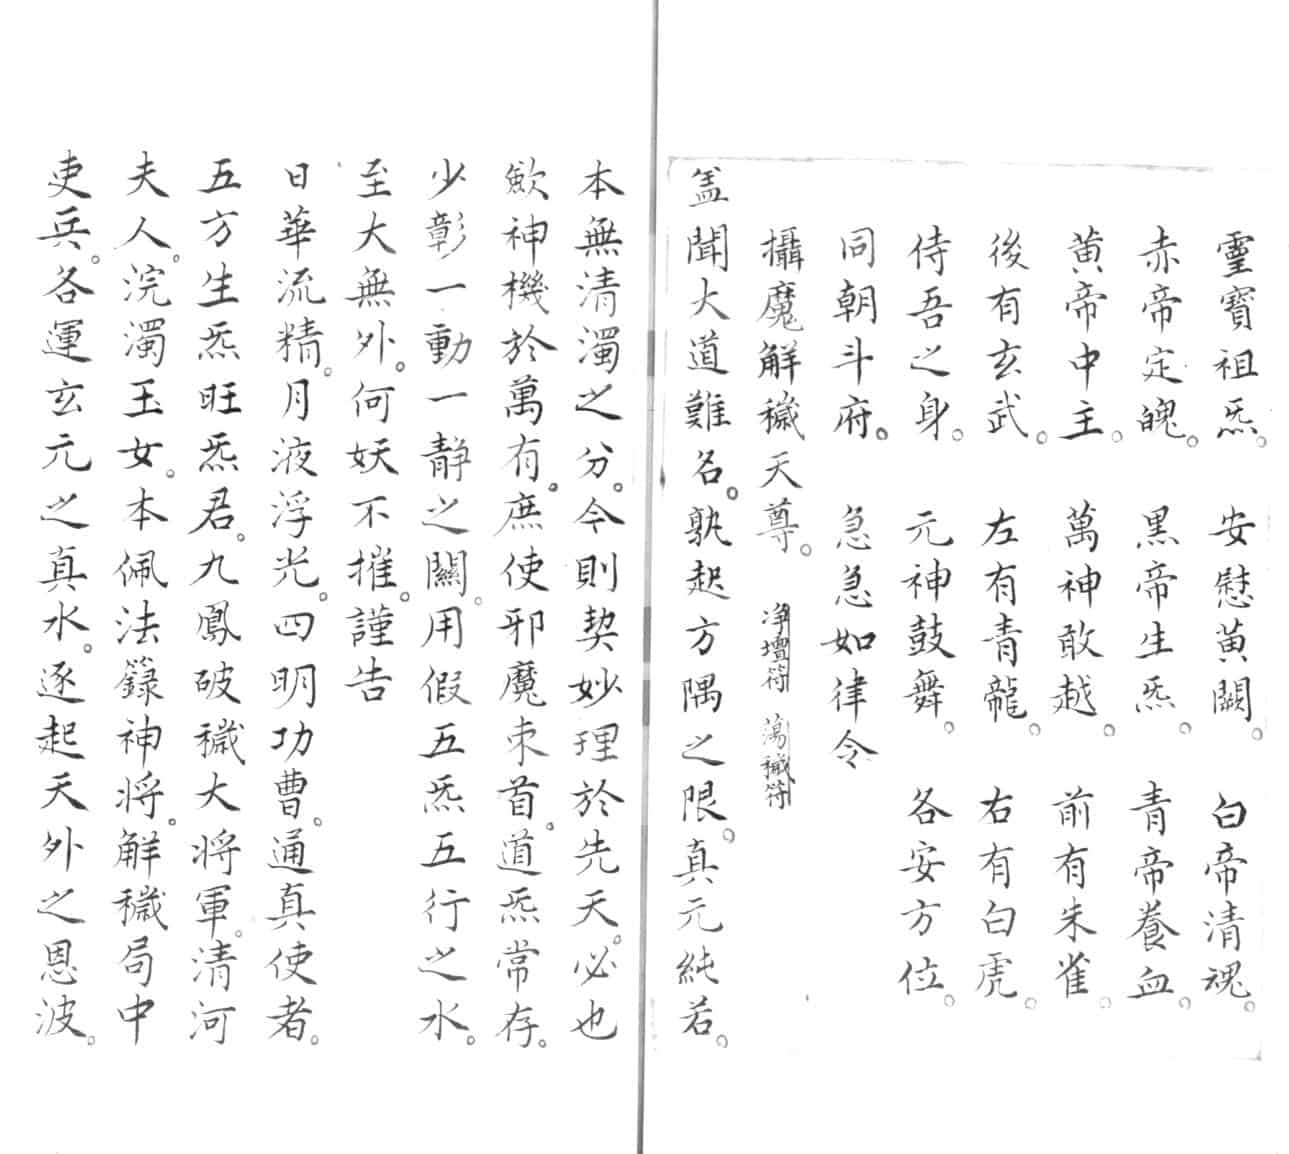 靈寶祖炁。安慰黃闕。白帝清魂。
赤帝定魄。黑帝生炁。青帝養血。
黃帝中主。萬神敢越。前有朱雀。
後有玄武。左有青龍。右有白虎。
侍吾之身。元神鼓舞。各安方位。
同朝斗府。急急如律令
攝魔解穢天尊。净壇符 蕩穢符
盖聞大道難名。孰起方隅之限。真元純若。
本無清濁之分。今則契妙理於先天。必也
歛神機於萬有。庶使邪魔束首。道炁常存。
少彰一動一靜之關。用假五炁五行之水。
至大無外。何妖不摧。謹告
日華流精。月液浮光。四明功曹。通真使者。
五方生炁旺炁君。九鳳破穢大將軍。清河
夫人。浣濁玉女。本佩法籙神將。解穢局中
吏兵。各運玄元之真水。逐起天外之恩波。